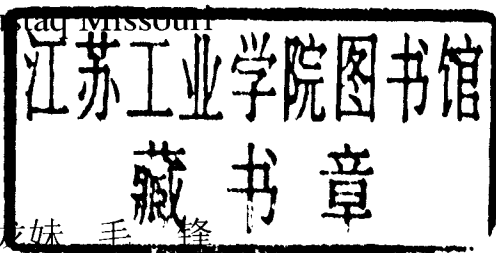 Missouri
江苏工业学院图书馆
藏书章
妹 毛 锋